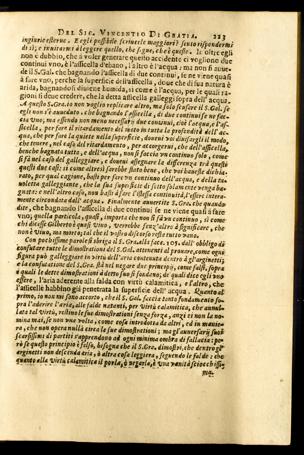 DEL SIG. VINCENTIO DI GRATIA. 223
ingiurie esterne. E egli possibile scriuerle maggiori? sento rispondermi
di sì; e inuitarmi à leggere quello, che segue, che è questo. Io oltre egli
non è dubbio, che à voler generare questo accidente ci vogliono due
continui vno, è l'assicella d'ebano, l'altro è l'acqua: ma non sì auue-
de il S. Gal. che bagnando l'assicella di due continui, se ne viene quasi
à fare vno, perche la superficie dell'assicella, doue che di sua natura è
arida, bagnandosi diuiene humida, si come è l'acqua, per le quali ra-
gioni si dourebbe credere, che la detta assicella galleggi sopra dell'acqua.
A questo S. Gra. io non voglio replicare altro, ma solo scusare il S. Gal. se
egli non s'è auueduto, che bagnando l'assicella, di due continui se ne fac-
cia vno, nè essendo men meno necessarij due continui, cioè l'acqua, e l'as-
sicella, per fare il ritardamento del moto in tutta la profondità dell'ac-
qua, che per fare la quiete nella superficie, doueui voi discorsegli il modo,
che tenere, nel caso del ritardamento, per accorgersi, che dell'assicella,
benche bagnata tutta, e dell'acqua, non si faccia vn continuo solo, come
si fà nel caso del galleggiare, e doueui assegnare la differenza trà questi
questi due casi: si come altresì sarebbe stato bene, che voi haueste dichia-
rato, per qual cagione, basti per fare vn continuo dell'acqua, e della ta-
uoletta galleggiante, che la sua superficie di sotto solamente venga ba-
gnata: e nell'altro caso, non basti à fare l'istessa continuità, l'essere intera-
mente circondata dall'acqua. Finalmente auuertite S. Gra. che quando
dite, che bagnando l'assicella di due continui se ne viene quasi à fare
vno, quella particola, quasi, importa che non si fà vn continuo, si come
chi dicesse Gilberto è quasi Vno, vorrebbe senz'altro significare, che
non è Vno, ma mentre tal che il vostro discorso resta tutto vano.
Con pochissime parole si sbriga il S. Gra. alla facc. 103. dall'obbligo di
confutare tutte le dimostrazioni del S. Gal. attenenti al prouare, come ogni
figura può galleggiare in virtù dell'aria contenuta dentro à gl'arginetti;
e la confutazione del S. Gra. stà nel negare due principij, come falsi, sopra
i quali le dette dimostrationi à detto suo si fondano; de quali dice egli vno
essere, l'aria aderente alla falda con virtù calamitica, e l'altro, che
l'assicelle habbino già penetrata la superficie dell'acqua. Quanto al
primo, io non mi sono accorto, che il S. Gal. faccia tanto fondamento so-
pra l'aderire l'aria, alle falde natanti, per virtù calamitica, che annul-
lata tal virtù, restino le sue dimostrazioni senza forza, anzi ei non la no-
mina mai, se non vna volta, come cosa introdotta da altri, ed in manie-
ra, che non opera nulla circa le sue dimostrazioni; ma gl'auuersarij suoi
scarsissimi di partiti s'apprendono ad ogni minima ombra di fallacia: po-
rò se questo principio è falso, bisogna che il S. Gra. dimostri, che dentro gl'
arginetti non descenda aria, ò altra cosa leggiera, seguendo le falde: che
quanto alla virtù calamitica il porla, ò negarla, è vna vanità sciocchissi-
ma.